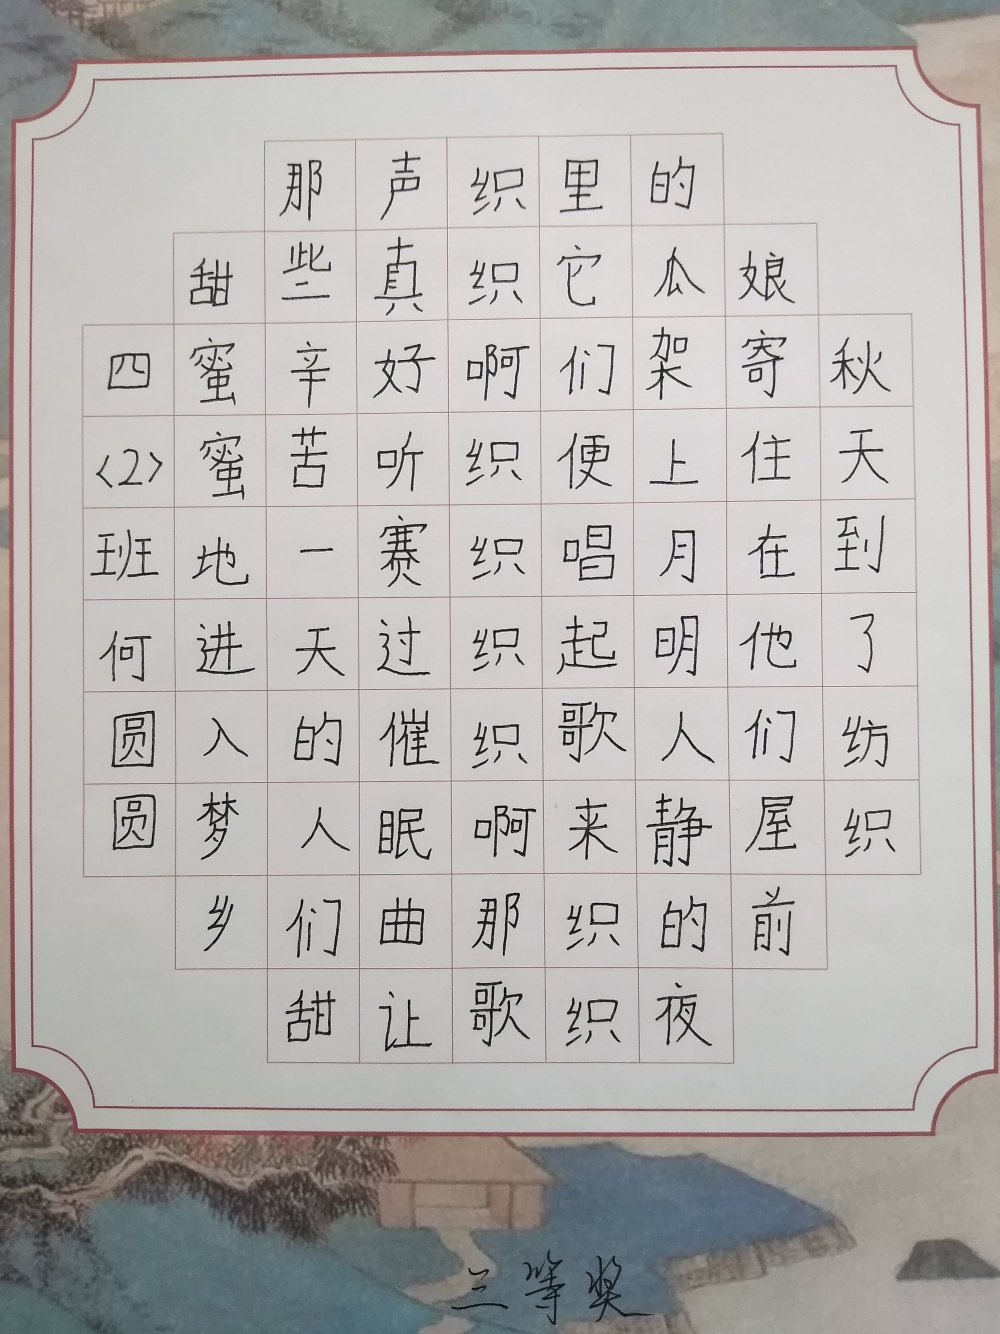 秋天到了纺织
娘寄住在他们屋前
的瓜架上月明人静的夜
里它们便唱起歌来织织
织织啊织织织织啊那歌
声真好听赛过催眠曲让
那些辛苦一天的人们甜
甜蜜蜜地进入梦乡
四〈2〉班何圆圆
三等奖